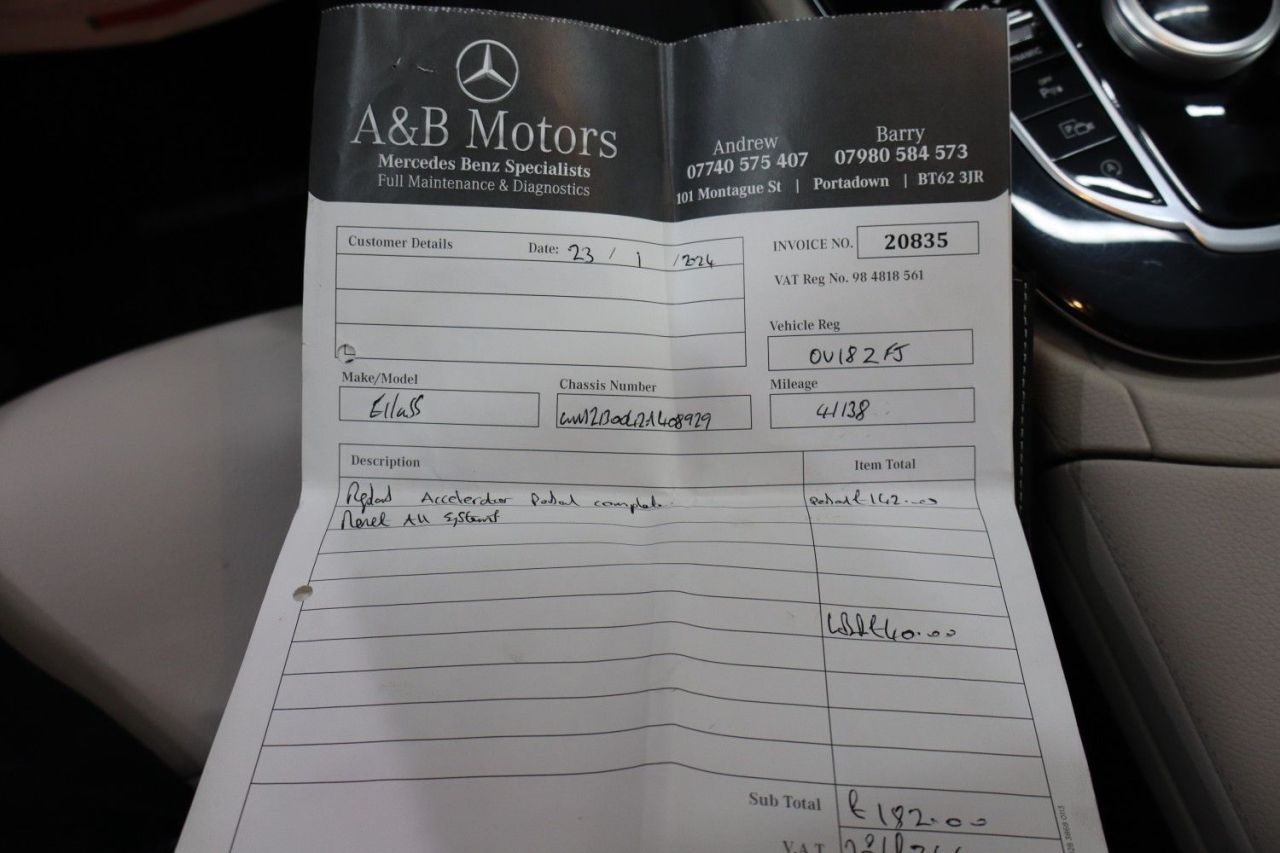 A&B Motors
Mercedes Benz Specialists
Full Maintenance & Diagnostics
Andrew
07740 575 407
Barry
07980 584 573
101 Montague St | Portadown | BT62 3JR
Customer Details Date: 23 / 1 /
INVOICE NO. 20835
VAT Reg No. 98 4818 561
Vehicle Reg
OV18 ZFJ
Make/Model
Chassis Number
Mileage
E Class
41138
Description Item Total
Accelerator Pedal complete
Pedal £142.00
Reset All Systems
£40.00
Sub Total £182.00
V.A.T